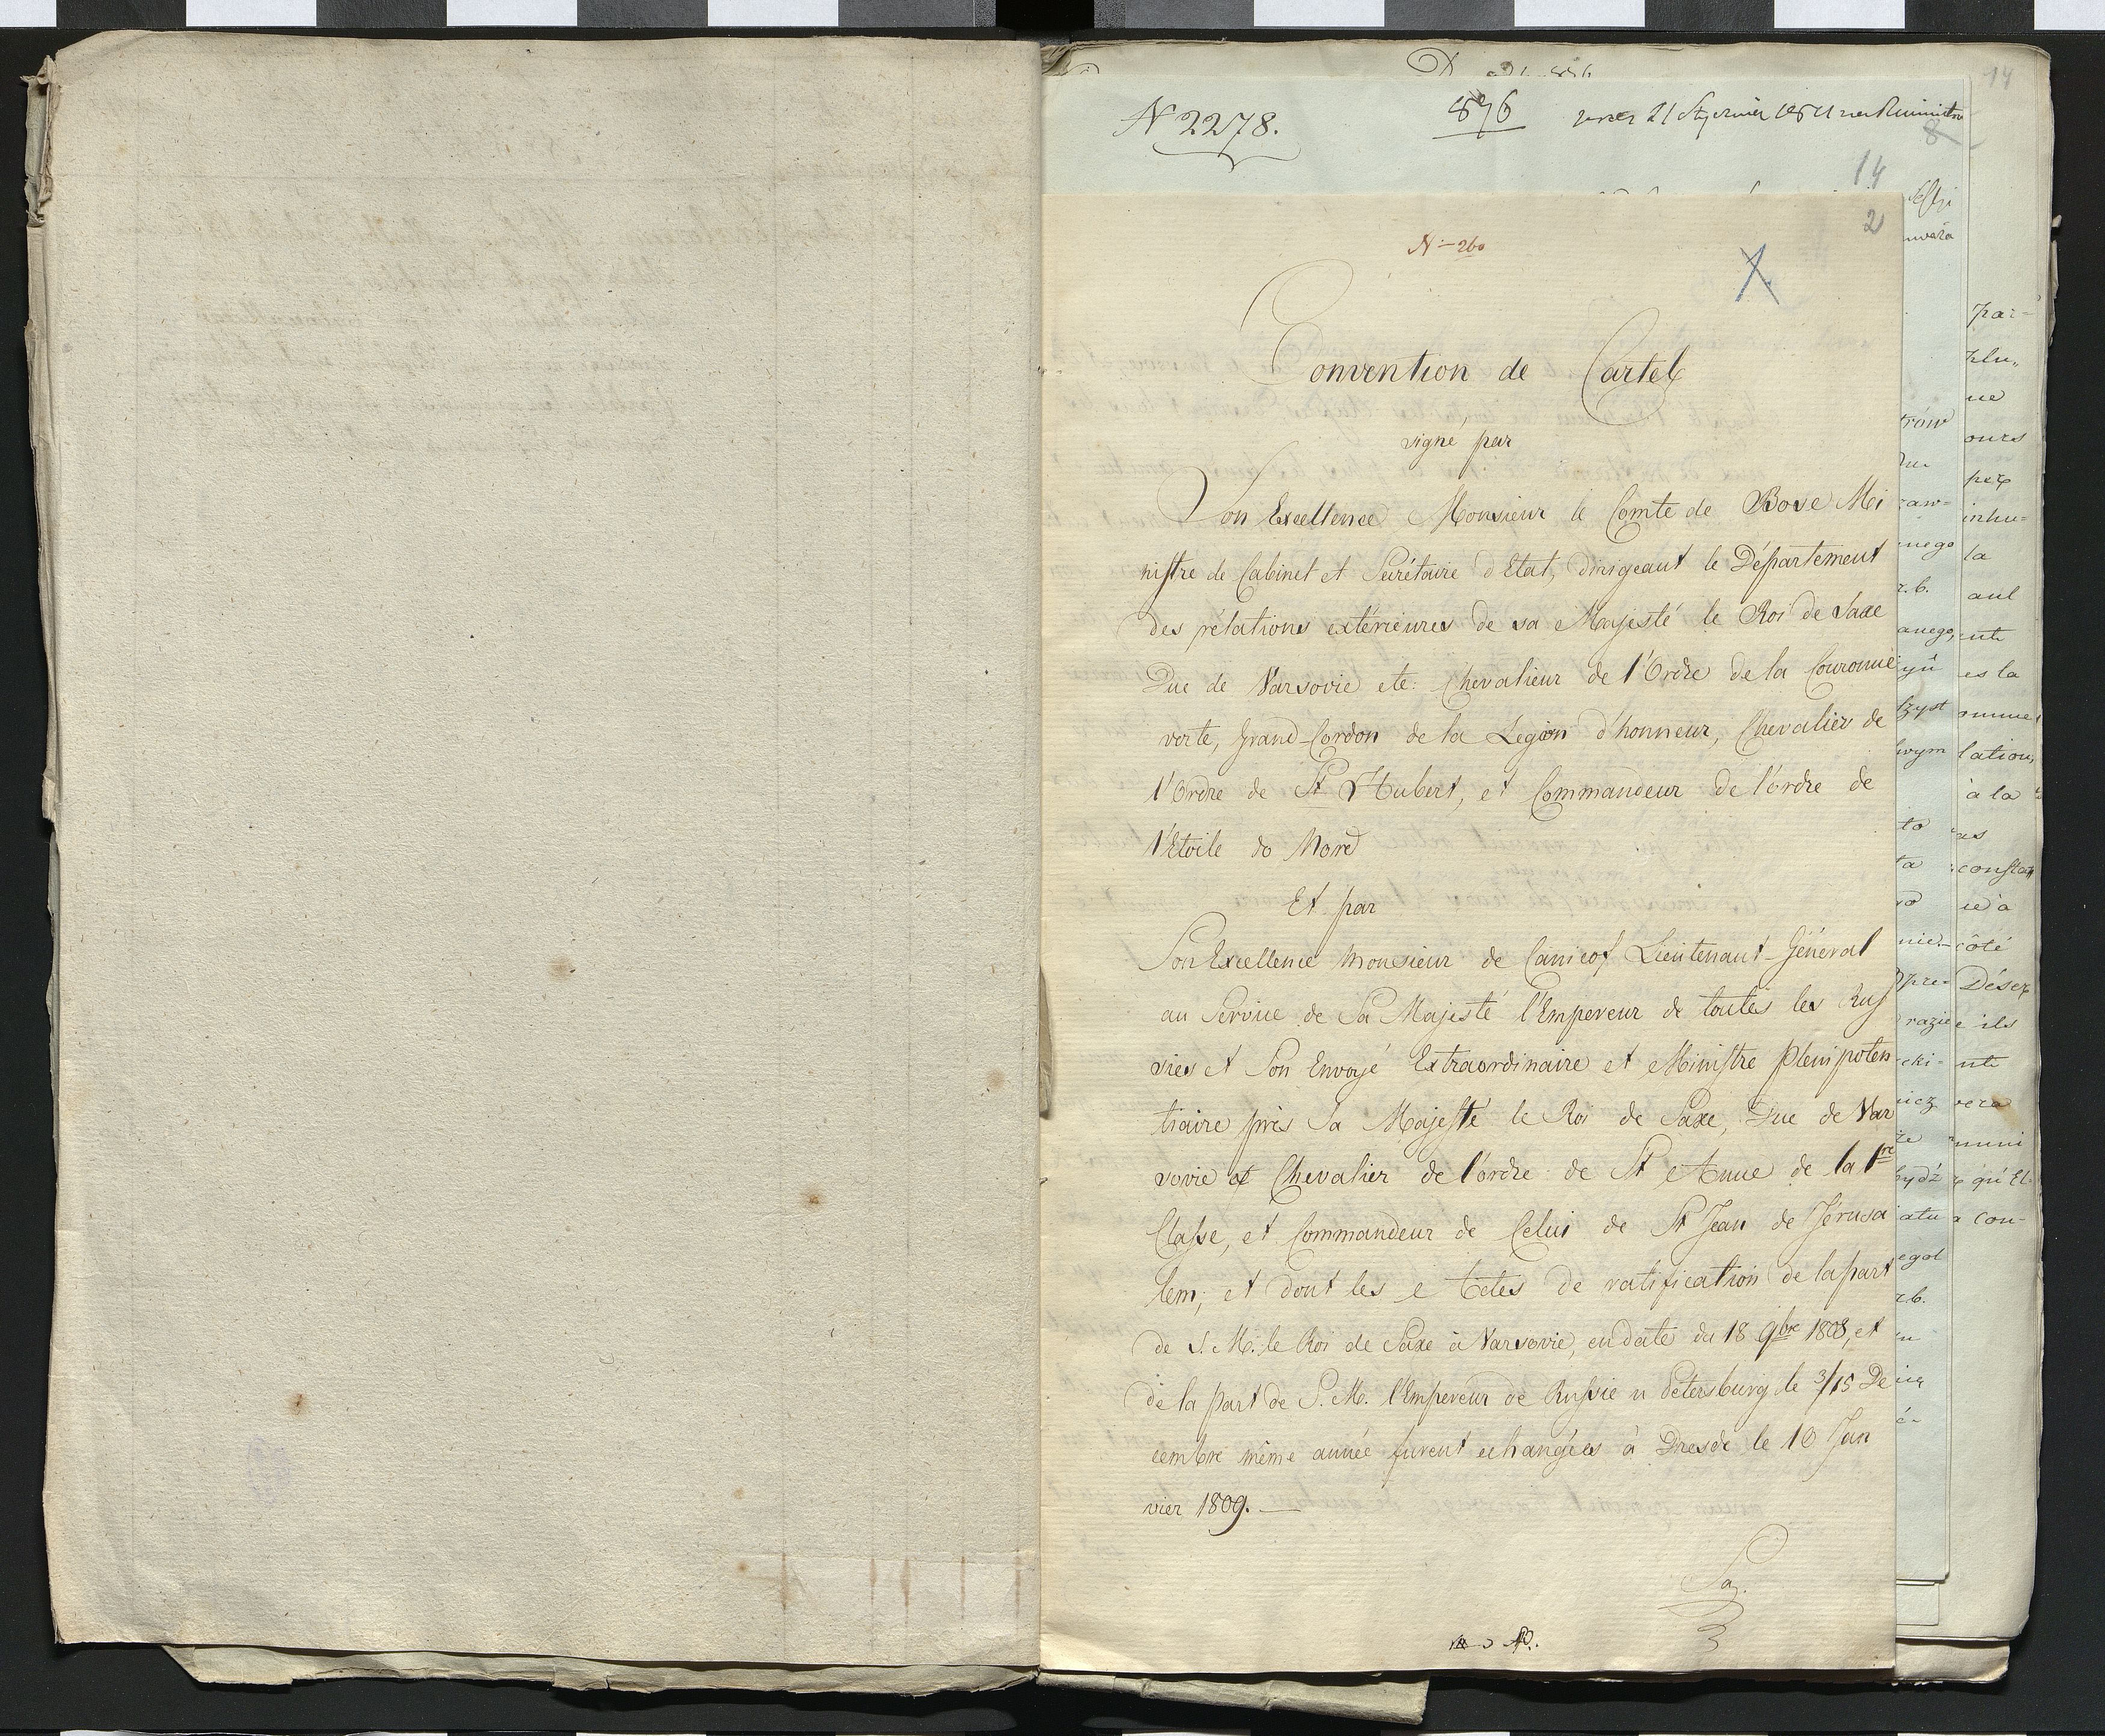 N 2278.
876
14
8
14
2
N=260
X
Convention de Cartel
signé par
Son Excellence Monsieur le Comte de Bose Mi
nistre de Cabinet et Secrétaire d'Etat, dirigeant le Département
des rélations extérieures de sa Majesté le Roi de Saxe
Duc de Varsovie etc: Chevalieur de l'Ordre de la Couronne
verte, Grand-Cordon de la Legion d'honneur, Chevalier de
l'Ordre de St Hubert, et Commandeur de l'ordre de
l'Etoile do Nord
Et par
Son Excellence Monsieur de Canicof Lieutenant-Général
au Service de Sa Majesté l'Empereur de toutes les Rus
sies et Son Envoyé Extraordinaire et Ministre Plenipoten
tiaire près Sa Majesté le Roi de Saxe, Duc de Var
sovie et Chevalier de l'ordre de St Anne de la 1re
Classe, et Commandeur de Celui de St Jean de Jérusa
lem; et dont les Actes de ratification de la part
de S. M. le Roi de Saxe à Varsovie, en date du 18 9bre 1808, et
de la part de S. M. l'Empereur de Russie à Petersburg le 3/15 De
cembre même année furent echangées à Dresde le 10 Jan
vier 1809. —
par=
plu„
ne
ours
per
inhu=
la
ente
es la
lation,
à la
constat
côté
Déser
e ils
nte
vera
muni
qu'El-
a con-
trów
raw=
nnego
r.b.
anego,
tzyst
wym
to
ta
nie-
pre=
razie
cki-
być
atu
egol
r.b.